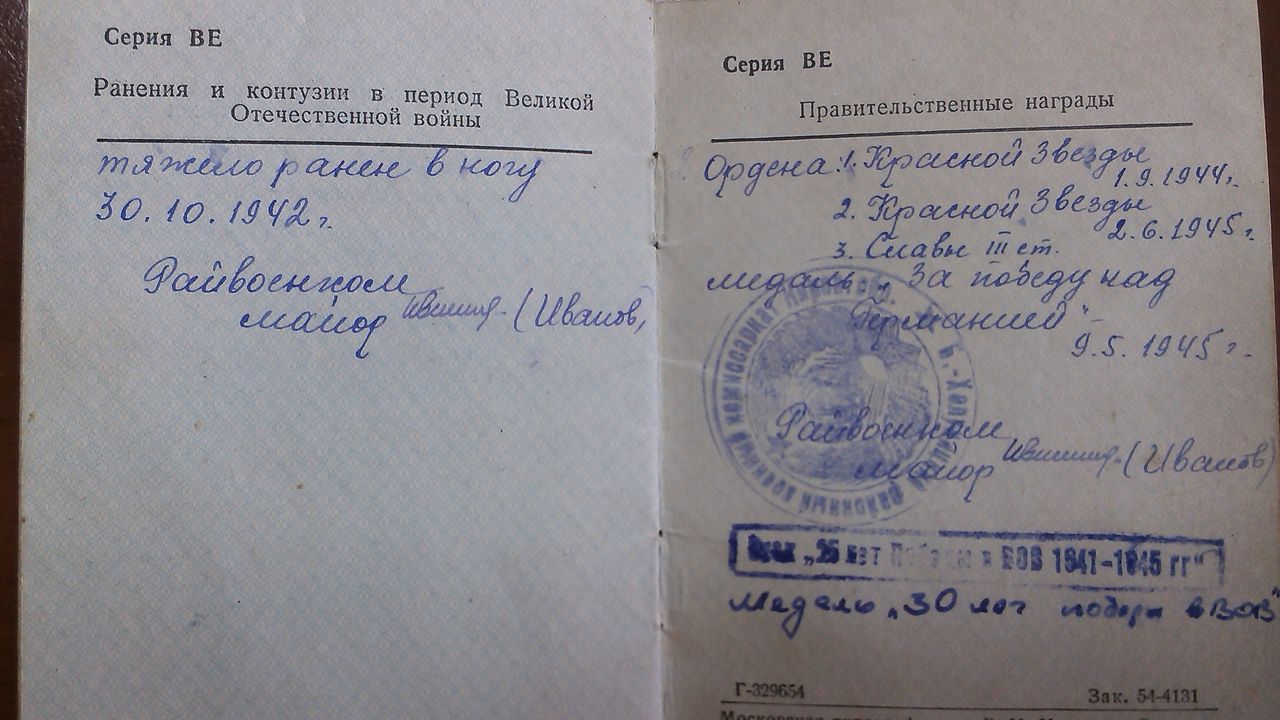 Серия ВЕ
Ранения и контузии в период Великой
Отечественной войны
тяжело ранен в ногу
30.10.1942г.
Райвоенком
майор (Иванов)
Серия ВЕ
Правительственные награды
Ордена: 1. Красной Звезды
1.9.1944г.
2. Красной Звезды
2.6.1945г.
3. Славы III ст.
медаль „За победу над
Германией"
9.5.1945г.
Райвоенком
майор (Иванов)
районный военный комиссариат
„25 лет Победы в ВОВ 1941-1945 гг"
Медаль „30 лет победы в ВОВ"
Г-329654
Зак. 54-4131